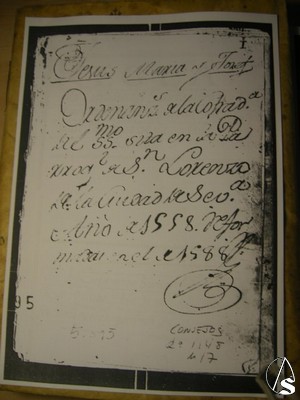 1
Jesus Maria y Joseph
Ordenans. de la Cofrad.ª
del SS.mo sita en la Pa
rroq.l de S.n Lorenzo
de la Ciudad de Sev.ª
Año de 1558. Refor
madas en el de 1588
95
CONSEJOS